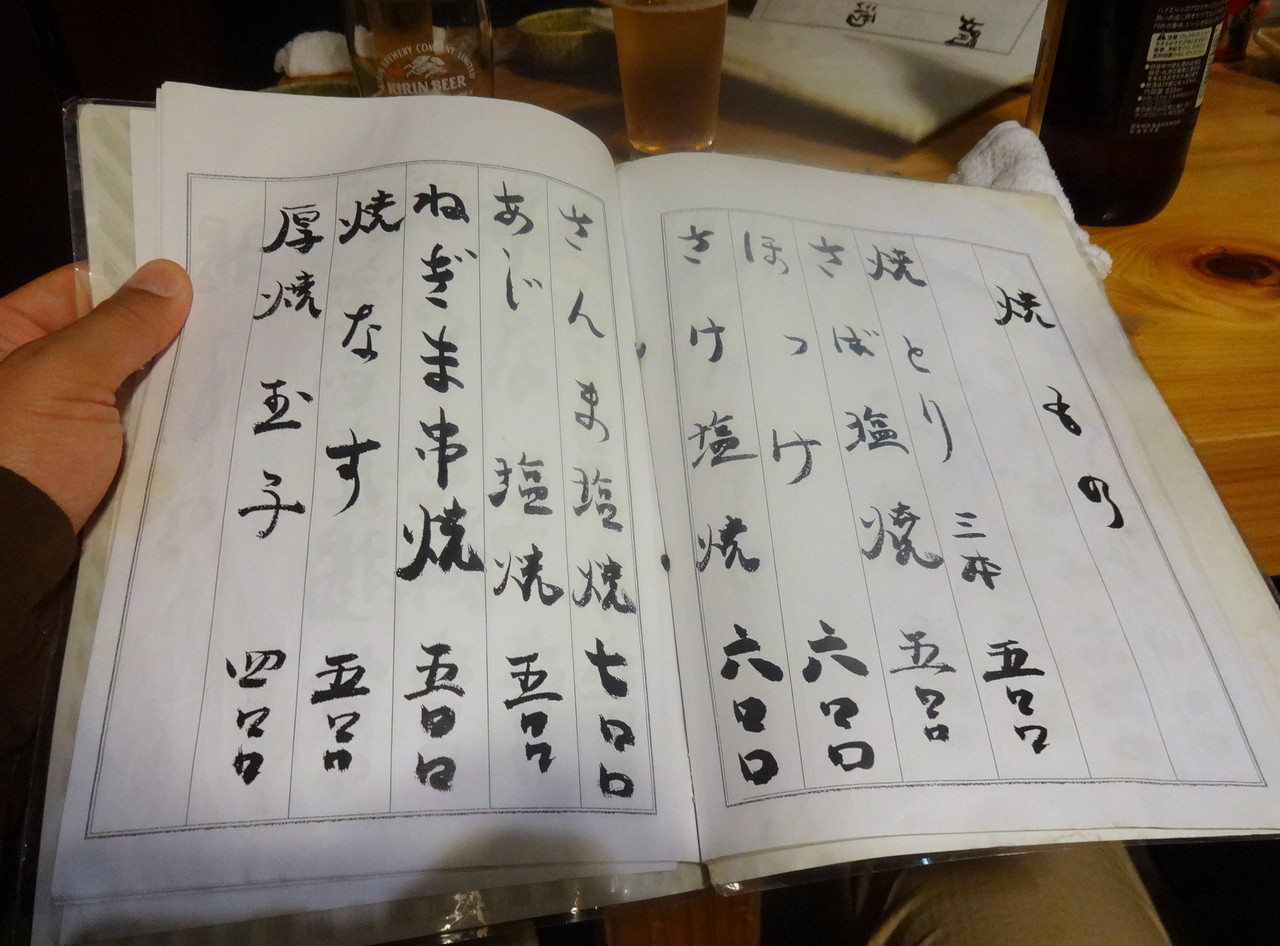 焼もの
焼とり 三本 五〇〇
さば塩焼 五〇〇
ほっけ 六〇〇
さけ塩焼 六〇〇
さんま塩焼 七〇〇
あじ塩焼 五〇〇
ねぎま串焼 五〇〇
焼なす 五〇〇
厚焼玉子 四〇〇
BREWERY COMPANY LIMITED
KIRIN BEER